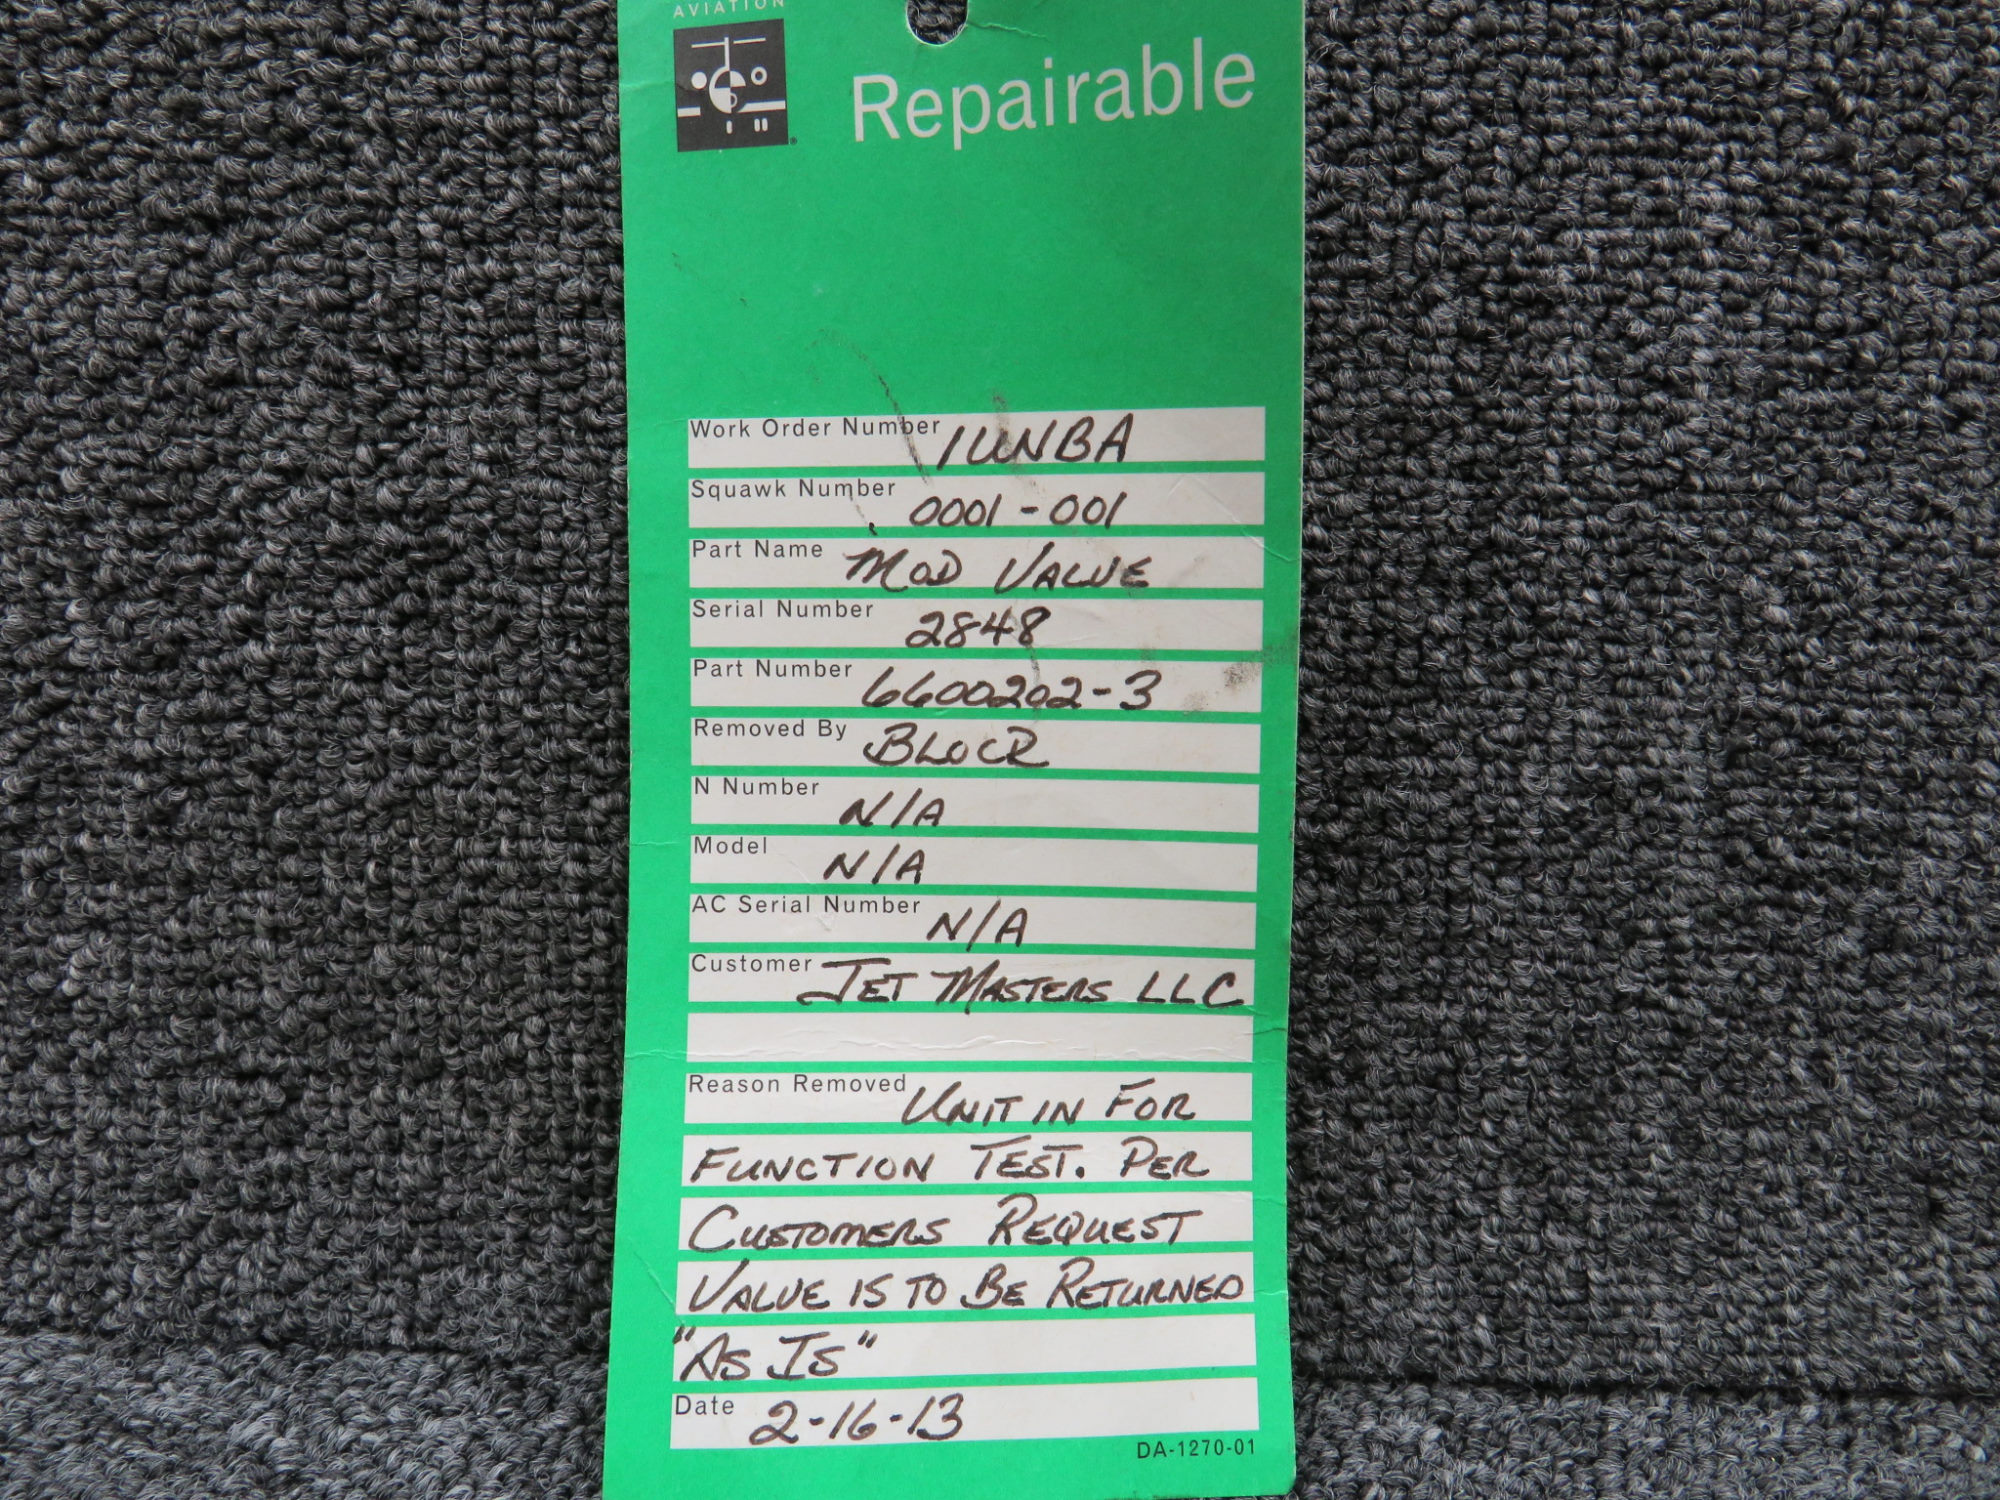 AVIATION
Repairable
Work Order Number 1UNBA
Squawk Number 0001-001
Part Name MOD VALVE
Serial Number 2848
Part Number 6600202-3
Removed By
N Number N/A
Model N/A
AC Serial Number N/A
Customer JET MASTERS LLC
Reason Removed UNIT IN FOR
FUNCTION TEST. PER
CUSTOMERS REQUEST
VALVE IS TO BE RETURNED
"AS IS"
Date 2-16-13
DA-1270-01